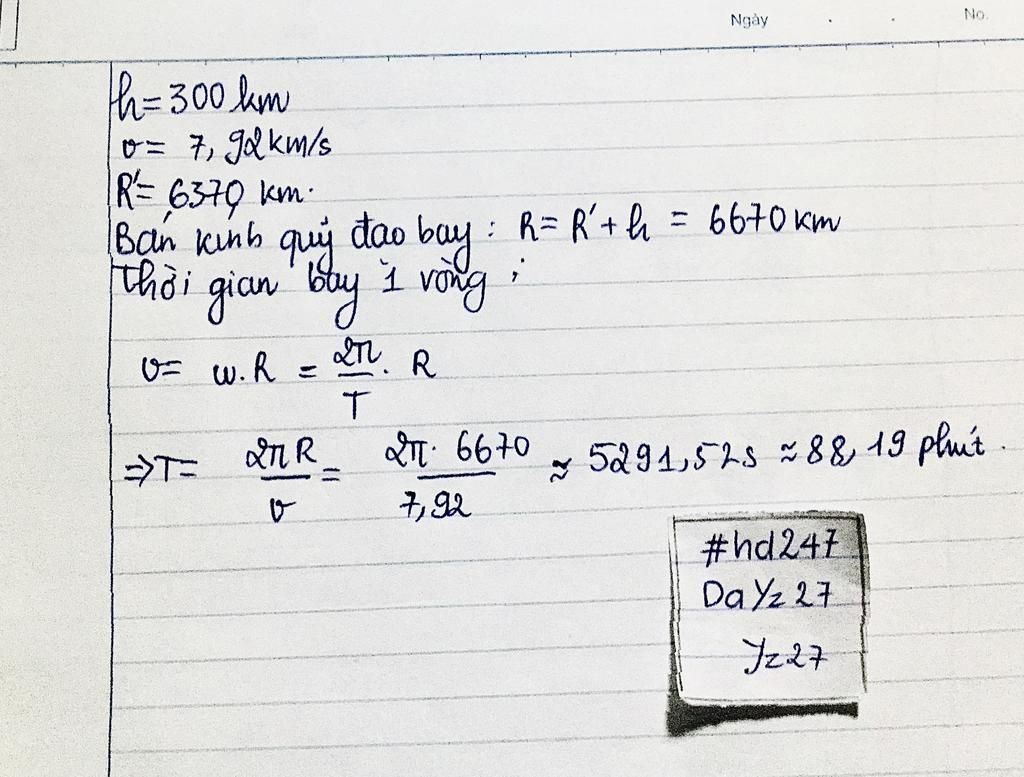 Ngày . . No.
h = 300 km
v = 7,92 km/s
R' = 6370 km.
Bán kính quỹ đạo bay : R = R' + h = 6670 km
Thời gian bay 1 vòng ;
v = w.R = 2π/T . R
=> T = 2πR/v = 2π. 6670/7,92 ≈ 5291,52s ≈ 88,19 phút.
#hd247
DaYz27
Yz27